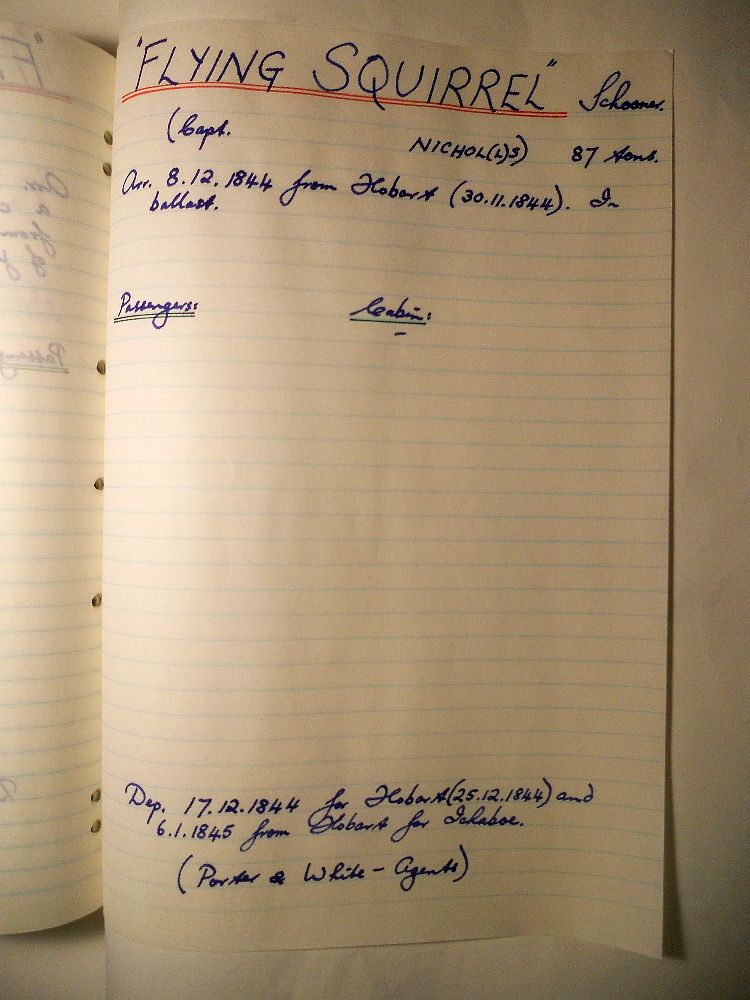 "FLYING SQUIRREL" Schooner.
(Capt. NICHOL(L)S) 87 tons.
Arr. 8.12.1844 from Hobart (30.11.1844). In
ballast.
Passengers: Cabin:
–
Dep. 17.12.1844 for Hobart (25.12.1844) and
6.1.1845 from Hobart for Ichaboe.
(Porter & White - Agents)